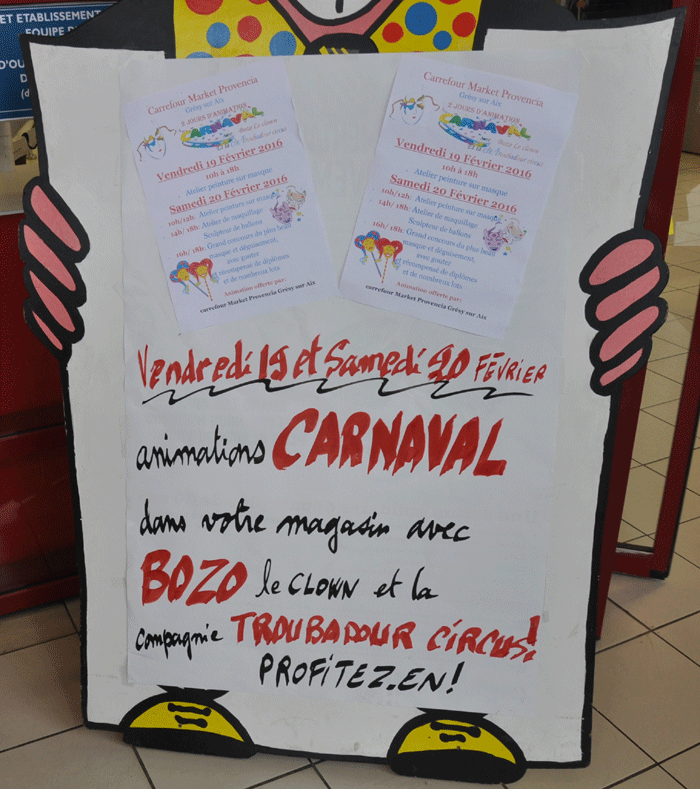 ET ETABLISSEMENT
EQUIPE D'
D'OU
D
(d
Carrefour Market Provencia
Grésy sur Aix
2 JOURS D'ANIMATION
CARNAVAL
Bozo Le Clown
Vendredi 19 Février 2016
10h à 18h
Atelier peinture sur masque
Samedi 20 Février 2016
10h/12h: Atelier peinture sur masque
14h/ 18h: Atelier de maquillage
Sculpteur de ballons
16h/ 18h: Grand concours du plus beau
masque et déguisement,
avec gouter
récompensé de diplômes
et de nombreux lots
Animation offerte par:
carrefour Market Provencia Grésy sur Aix
Carrefour Market Provencia
Grésy sur Aix
2 JOURS D'ANIMATION
CARNAVAL
Bozo Le Clown
Vendredi 19 Février 2016
10h à 18h
Atelier peinture sur masque
Samedi 20 Février 2016
10h/12h: Atelier peinture sur masque
14h/ 18h: Atelier de maquillage
Sculpteur de ballons
16h/ 18h: Grand concours du plus beau
masque et déguisement,
avec gouter
récompensé de diplômes
et de nombreux lots
Animation offerte par:
carrefour Market Provencia Grésy sur Aix
Vendredi 19 et Samedi 20 FÉVRIER
animations CARNAVAL
dans votre magasin avec
BOZO le CLOWN et la
compagnie TROUBADOUR CIRCUS!
PROFITEZ.EN!